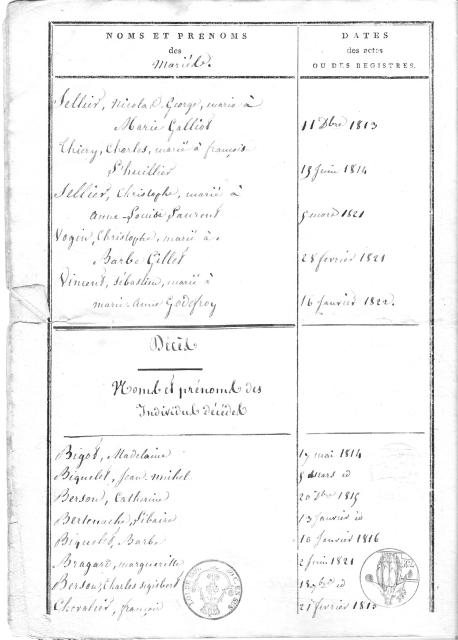 NOMS ET PRÉNOMS
des
Mariés.
DATES
des actes
OU DES REGISTRES.
Sellier, Nicolas George, marié à
Marie Galliot
11 Xbre 1813
Thiery, Charles, marié à françois
L'huillier
15 juin 1814
Sellier, Christophe, marié à
Anne-Louise Laurent
5 mars 1821
Vogin, Christophe, marié à
Barbe Gillet
28 février 1821
Vincent, Sébastien, marié à
marie-Anne Godefroy
16 janvier 1822.
Décès
Noms et prénoms des
Individus décédés
Bigot, Madelaine 17 mai 1814
Biquelet, Jean-michel mars id
Berson, Catherine 20 Xbre 1815
Bertenache, Libaire 13 janvier id
Biquelet, Barbe 10 janvier 1816
Bragard, marguerite 2 juin 1821
Berson, Charles sigisbert id
Chevalier, françois 21 février